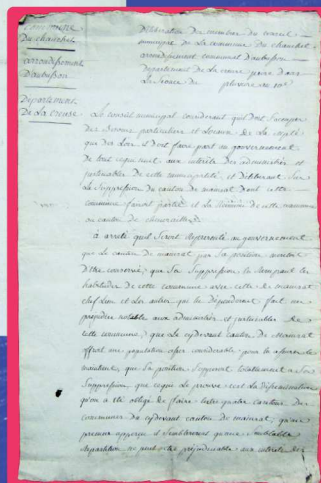 Commune
Du chauchet
arrondissement
D'aubusson
Departement
De La Creuse
Déliberation des membres du conseil
municipal de La commune du chauchet
arrondissement communal d'aubusson
Departement de La creuse prise dans
La Seance de pluviose an 10e
Le conseil municipal considerant qu'il doit s'occuper
des Besoins particuliers et Locaux de La
que des Loix et doit faire part au gouvernement
de tout ce qui nuit aux interêts des administrés et
de cette municipalité et déliberant sur
La Suppression du canton de mainsat dont cette
commune faisoit partie et La Réunion de cette commune
au canton de chenerailles
à arreté qu'il Seroit Representé au gouvernement
que Le canton de mainsat par Sa position meritoit
D'être conservé, que Sa Suppression, Le rompant les
habitudes de cette commune avec celle de mainsat
chef Lieu et Les autres qui le dependoient fait un
prejudice notable aux administrés et de
cette commune, que Le cydevant canton de Mainsat
offroit une population assez considerable pour le
maintenir, que Sa position Seulement à Sa
Suppression, que ce qui Le prouve c'est La
qu'on a été obligé de faire entre quatre cantons des
communes du cydevant canton de mainsat, qu'une
semblable
Repartition ne peut être prejudiciable aux interêts des